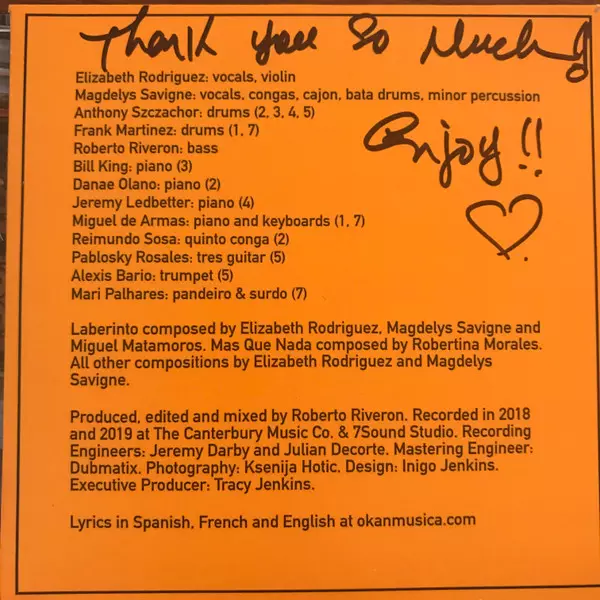 Thank you so Much!
Elizabeth Rodriguez: vocals, violin
Magdelys Savigne: vocals, congas, cajon, bata drums, minor percussion
Anthony Szczachor: drums (2, 3, 4, 5)
Frank Martinez: drums (1, 7)
Roberto Riveron: bass
Enjoy!!
Bill King: piano (3)
Danae Olano: piano (2)
Jeremy Ledbetter: piano (4)
Miguel de Armas: piano and keyboards (1, 7)
Reimundo Sosa: quinto conga (2)
Pablosky Rosales: tres guitar (5)
Alexis Bario: trumpet (5)
Mari Palhares: pandeiro & surdo (7)
Laberinto composed by Elizabeth Rodriguez, Magdelys Savigne and
Miguel Matamoros. Mas Que Nada composed by Robertina Morales.
All other compositions by Elizabeth Rodriguez and Magdelys
Savigne.
Produced, edited and mixed by Roberto Riveron. Recorded in 2018
and 2019 at The Canterbury Music Co. & 7Sound Studio. Recording
Engineers: Jeremy Darby and Julian Decorte. Mastering Engineer:
Dubmatix. Photography: Ksenija Hotic. Design: Inigo Jenkins.
Executive Producer: Tracy Jenkins.
Lyrics in Spanish, French and English at okanmusica.com